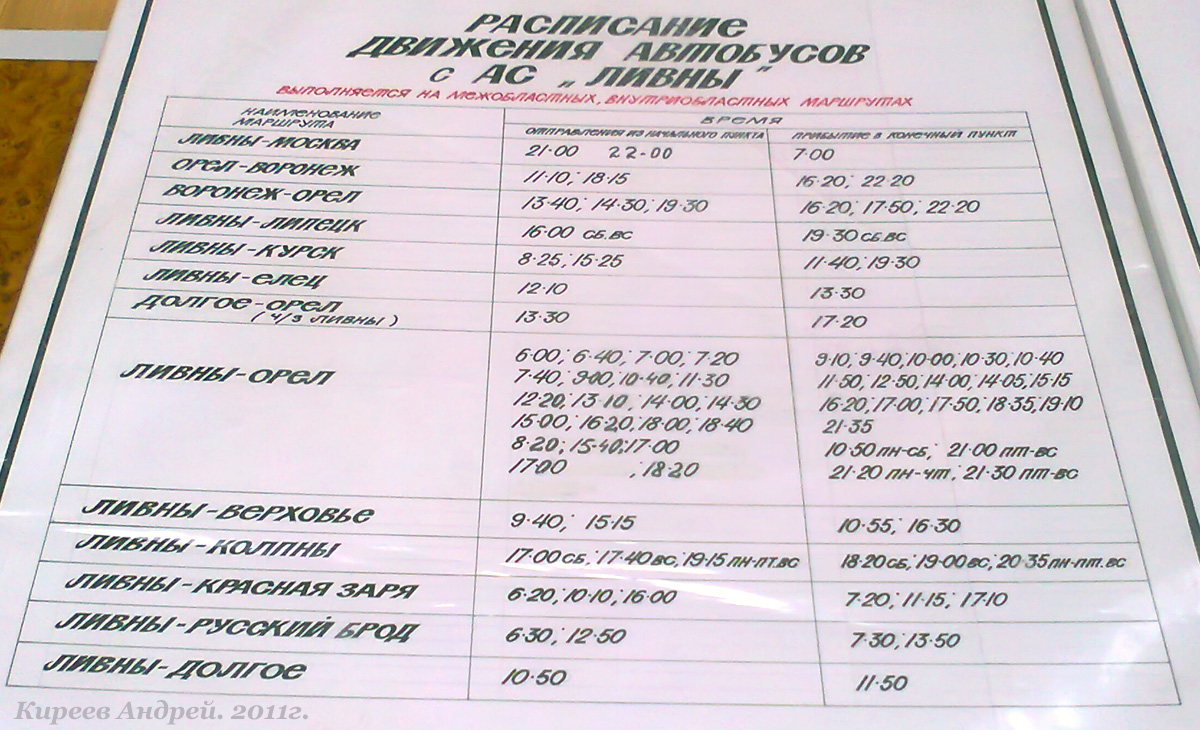 РАСПИСАНИЕ
ДВИЖЕНИЯ АВТОБУСОВ
с АС „ЛИВНЫ"
ВЫПОЛНЯЕТСЯ НА МЕЖОБЛАСТНЫХ, ВНУТРИОБЛАСТНЫХ МАРШРУТАХ
НАИМЕНОВАНИЕ МАРШРУТА ВРЕМЯ
ОТПРАВЛЕНИЯ ИЗ НАЧАЛЬНОГО ПУНКТА ПРИБЫТИЕ В КОНЕЧНЫЙ ПУНКТ
ЛИВНЫ-МОСКВА 21·00 22-00 7·00
ОРЕЛ-ВОРОНЕЖ 11·10; 18·15 16·20; 22·20
ВОРОНЕЖ-ОРЕЛ 13·40; 14·30; 19·30 16·20; 17·50; 22·20
ЛИВНЫ-ЛИПЕЦК 16·00 СБ,ВС 19·30 СБ,ВС
ЛИВНЫ-КУРСК 8·25; 15·25 11·40; 19·30
ЛИВНЫ-ЕЛЕЦ 12·10 13·30
ДОЛГОЕ-ОРЕЛ 13·30 17·20
(Ч/З ЛИВНЫ)
6·00; 6·40; 7·00; 7·20 9·10; 9·40; 10·00; 10·30; 10·40
ЛИВНЫ-ОРЕЛ 7·40; 9·00; 10·40; 11·30 11·50; 12·50; 14·00; 14·05; 15·15
12·20; 13·10; 14·00; 14·30 16·20; 17·00; 17·50; 18·35; 19·10
15·00; 16·20; 18·00; 18·40 21·35
8·20; 15·40; 17·00 10·50 ПН-СБ; 21·00 ПТ-ВС
17·00 ; 18·20 21·20 ПН-ЧТ; 21·30 ПТ-ВС
ЛИВНЫ-ВЕРХОВЬЕ 9·40; 15·15 10·55; 16·30
ЛИВНЫ-КОЛПНЫ 17·00 СБ; 17·40 ВС; 19·15 ПН-ПТ.ВС 18·20 СБ; 19·00 ВС; 20·35 ПН-ПТ.ВС
ЛИВНЫ-КРАСНАЯ ЗАРЯ 6·20; 10·10; 16·00 7·20; 11·15; 17·10
ЛИВНЫ-РУССКИЙ БРОД 6·30; 12·50 7·30; 13·50
ЛИВНЫ-ДОЛГОЕ 10·50 11·50
Киреев Андрей. 2011г.